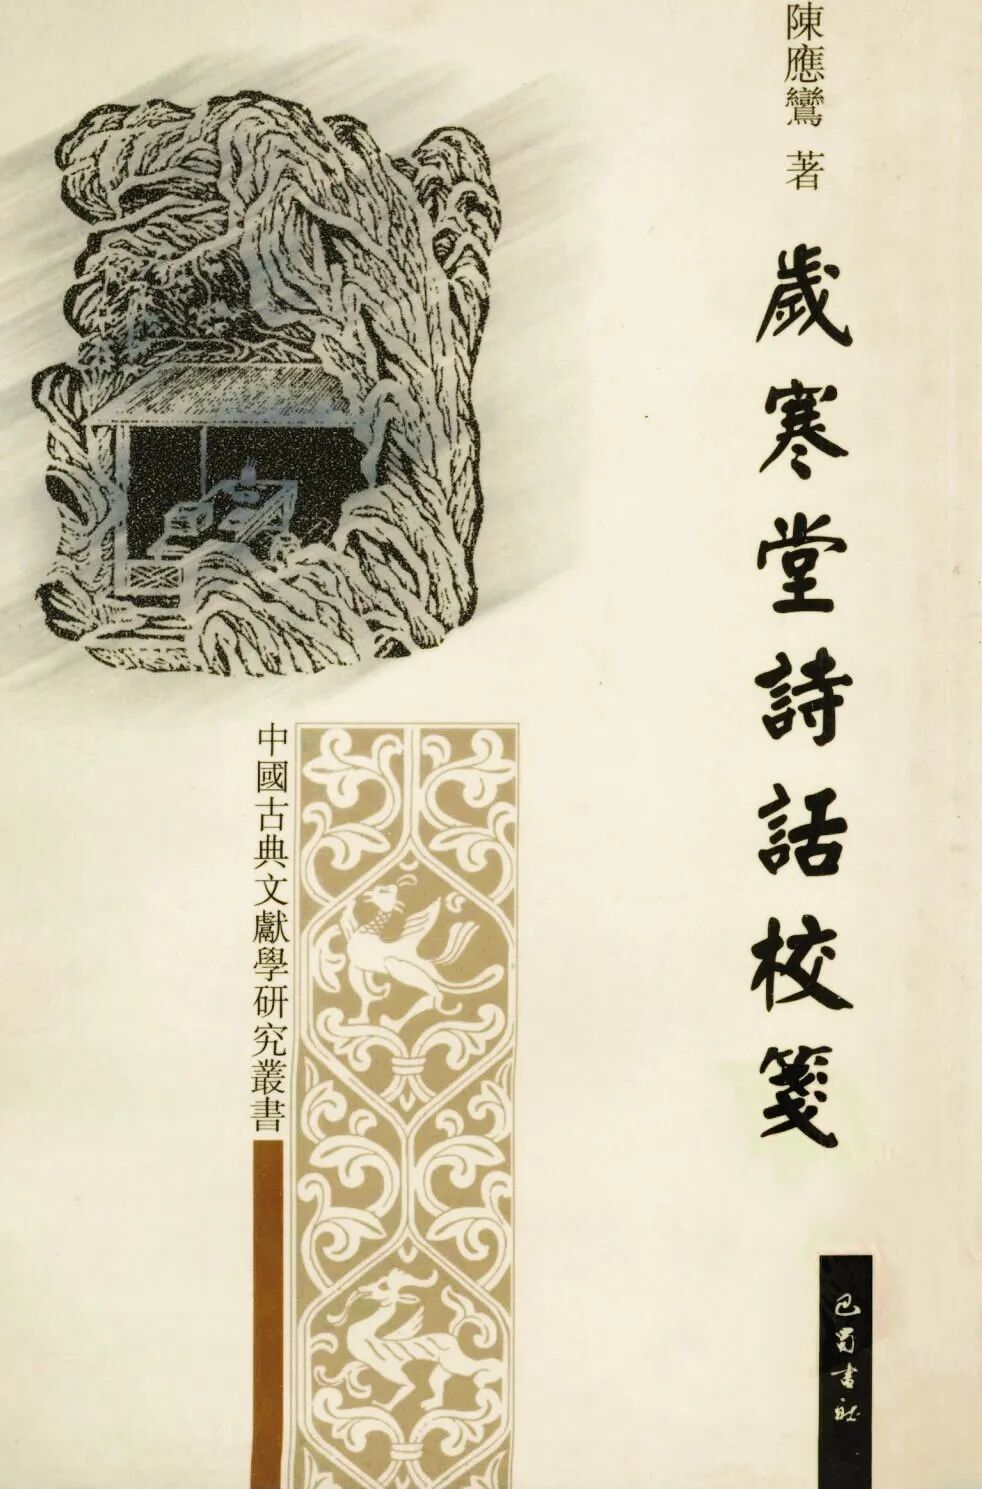 陳應鸞 著
歲寒堂詩話校箋
中國古典文獻學研究叢書
巴蜀書社